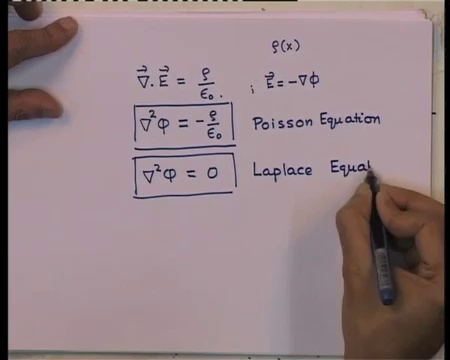 ρ(x)
∇⃗.E⃗ = ρ/ε₀. ; E⃗ = -∇Φ
∇²Φ = -ρ/ε₀ Poisson Equation
∇²Φ = 0 Laplace Equat